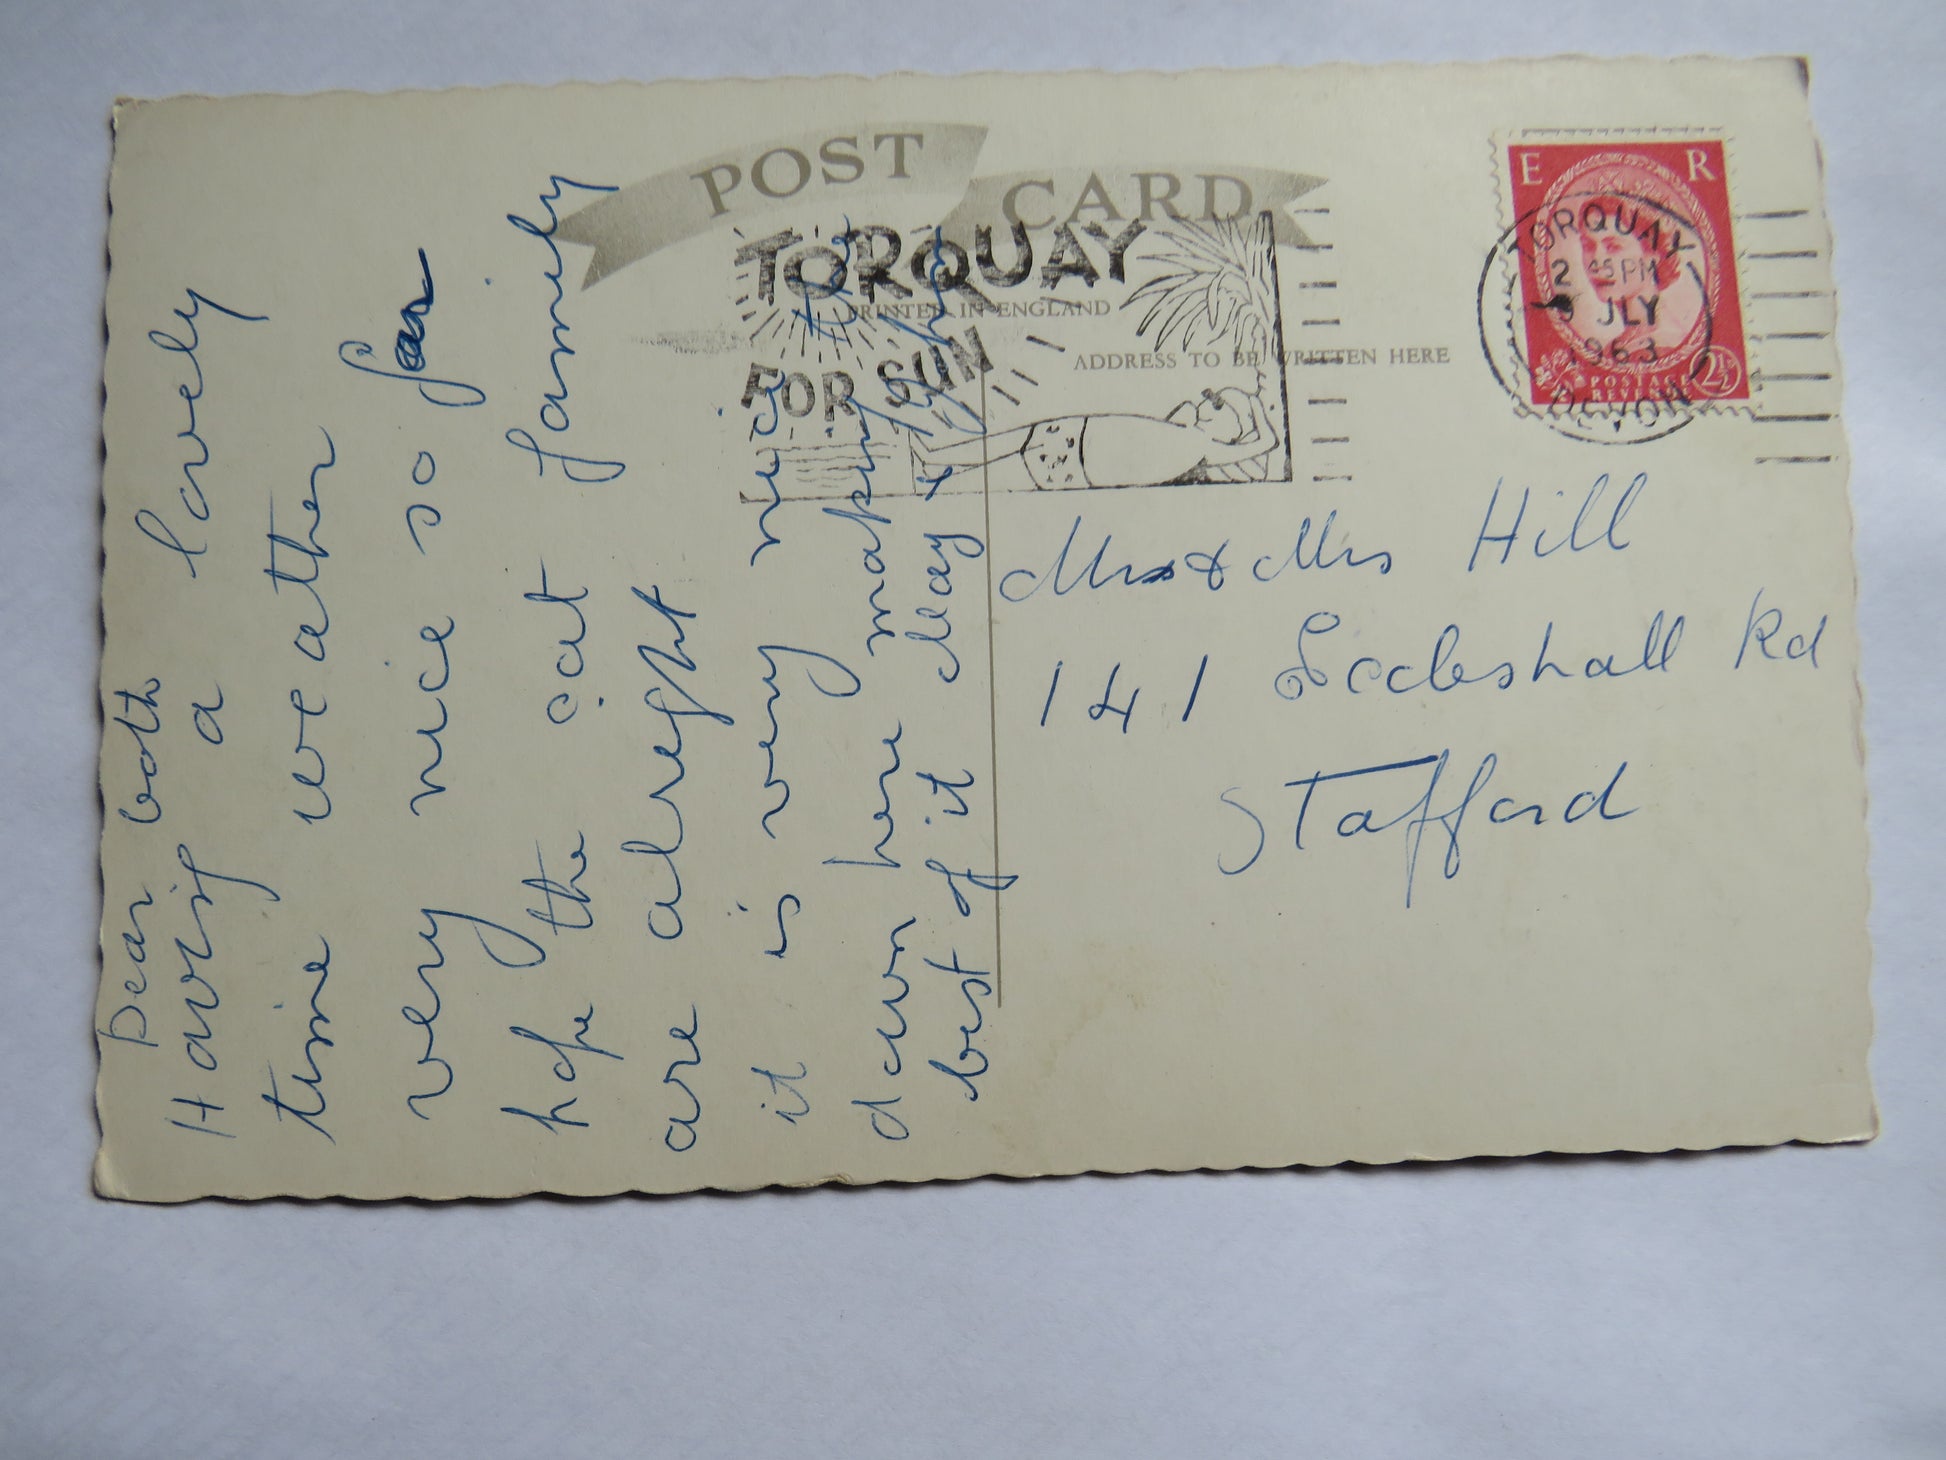 POST CARD
TORQUAY
FOR SUN
PRINTED IN ENGLAND
ADDRESS TO BE WRITTEN HERE
E R
POSTAGE
REVENUE
2½
TORQUAY
2 45 PM
JLY
1963
DEVON
Dear both
Having a lovely
time weather
very nice so far
hope the cat family
are alright
it is very nice
down here making the
best of it May &
Mr & Mrs Hill
141 Eccleshall Rd
Stafford